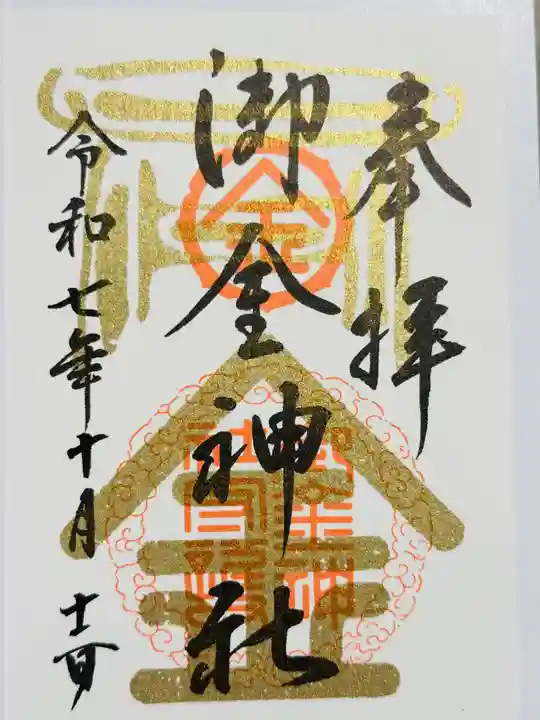 奉拝
御金神社
令和七年十月
金